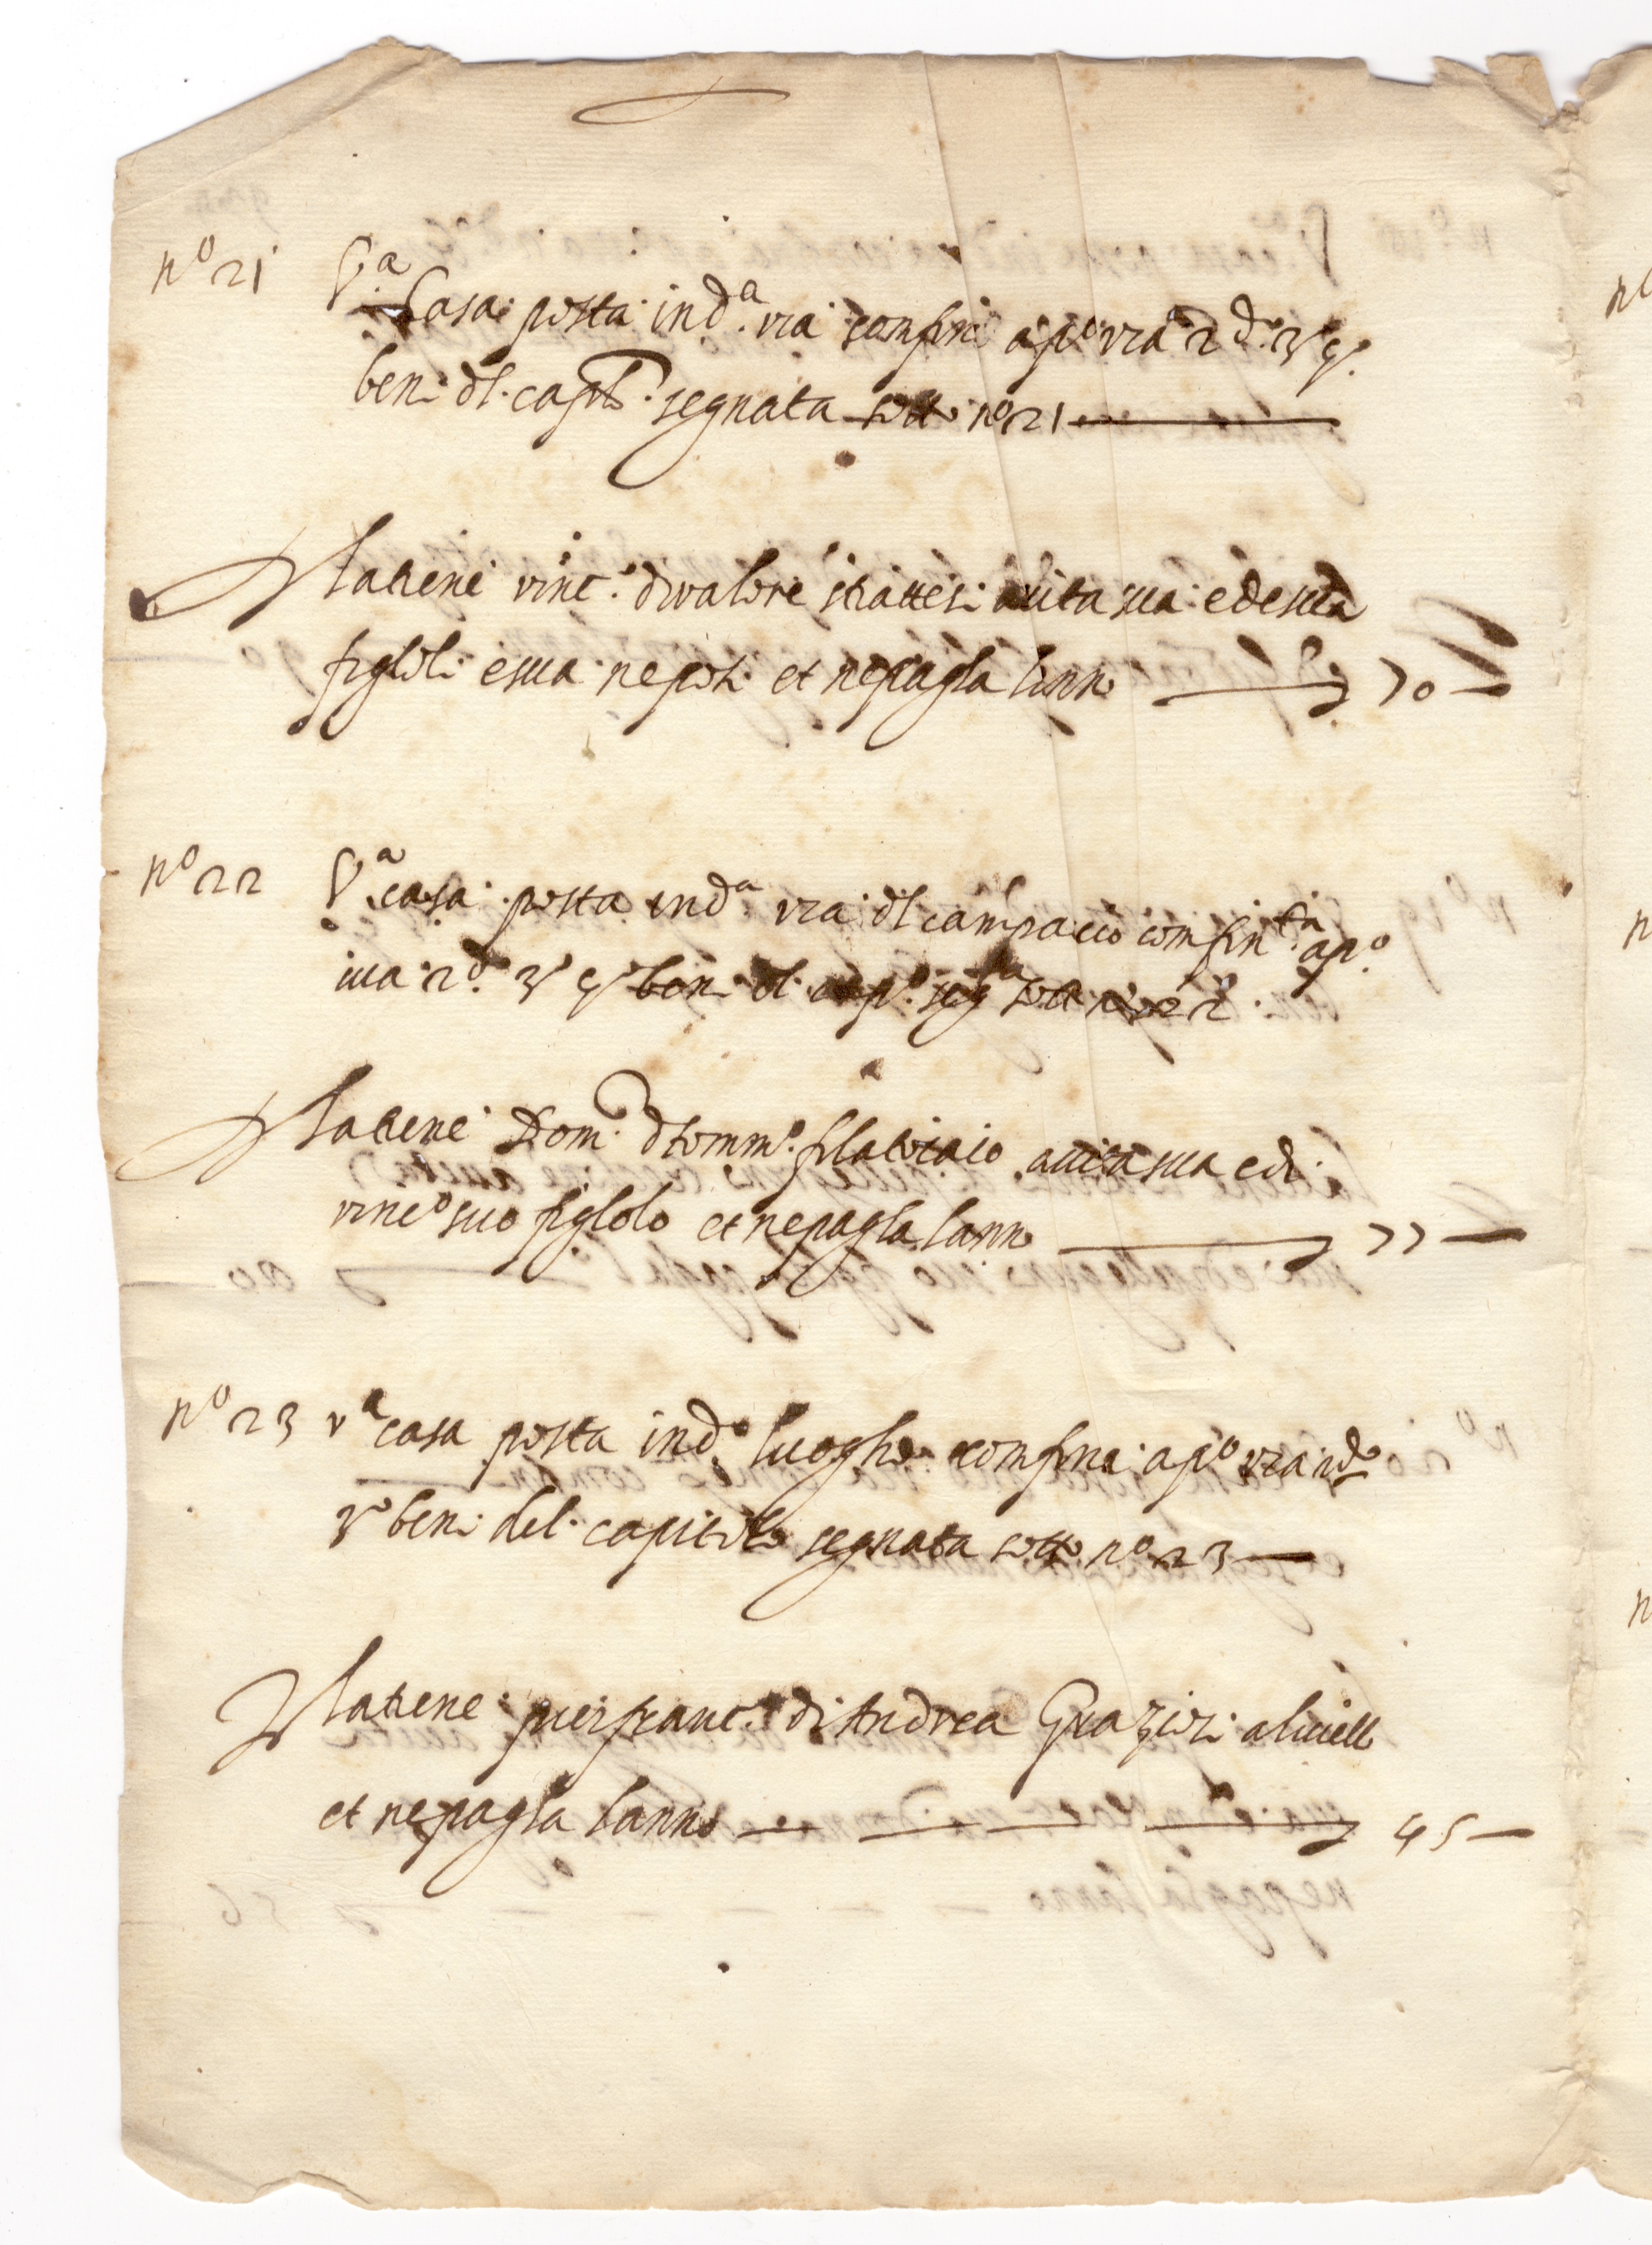 nº 21 Vª Casa posta in dª via confini a pº via 2º 3º 4º
beni dl caplº segnata sotto nº 21
la tiene vincº di valore a vita sua e de sua
figloli e sua nepoti et ne pagha lanno 70
nº 22 Vª casa posta in dª via dl campaccio confinta a pº
via 2º 3º 4º beni dl capº segta sotto nº 22
la tiene Domco di tommº a vita sua e di
vincº suo figlolo et ne pagha lanno 77
nº 23 vª casa posta in dº luogho confina a pº via 2do
3º beni del capitolo segnata sotto nº 23
la tiene pierfrancº di Andrea a livello
et ne pagha lanno 45